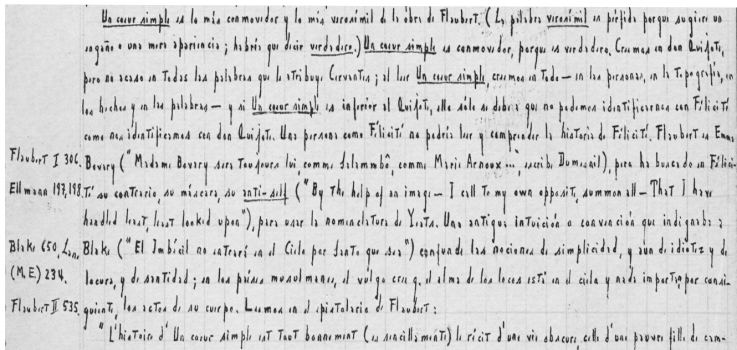 Un coeur simple es lo más conmovedor y lo más verosímil de la obra de Flaubert. (La palabra verosímil es pérfida porque sugiere un
engaño o una mera apariencia; habría que decir verdadero.) Un coeur simple es conmovedor, porque es verdadero. Creemos en don Quijote,
pero no acaso en todas las palabras que le atribuye Cervantes; al leer Un coeur simple, creemos en todo — en las personas, en la topografía, en
los hechos y en las palabras — y si Un coeur simple es inferior al Quijote, ello sólo se deberá que no podemos identificarnos con Félicité
como nos identificamos con don Quijote. Una persona como Félicité no podría leer y comprender la historia de Félicité. Flaubert es Emma
Flaubert I 306. Bovary ("Madame Bovary sera toujours lui, comme Salammbô, comme Marie Arnoux...", escribe Dumesnil), pero ha buscado en Félici-
Ellmann 197, 198. té su contrario, su máscara, su anti-self ("By the help of an image — I call to my own opposite, summon all — That I have
handled least, least looked upon"), para usar la nomenclatura de Yeats. Una antigua intuición o convención que indignaba a
Blake 650, Blake ("El Imbécil no entrará en el Cielo por santo que sea") confunde las nociones de simplicidad, y aun de idiotez y de
(M.E.) 234. locura, y de santidad; en los países musulmanes, el vulgo cree q. el alma de los locos está en el cielo y nada importan, por consi-
Flaubert II 535. guiente, los actos de su cuerpo. Leemos en el epistolario de Flaubert:
"L'histoire d'Un coeur simple est tout bonnement (es sencillamente) le récit d'une vie obscure, celle d'une pauvre fille de cam-